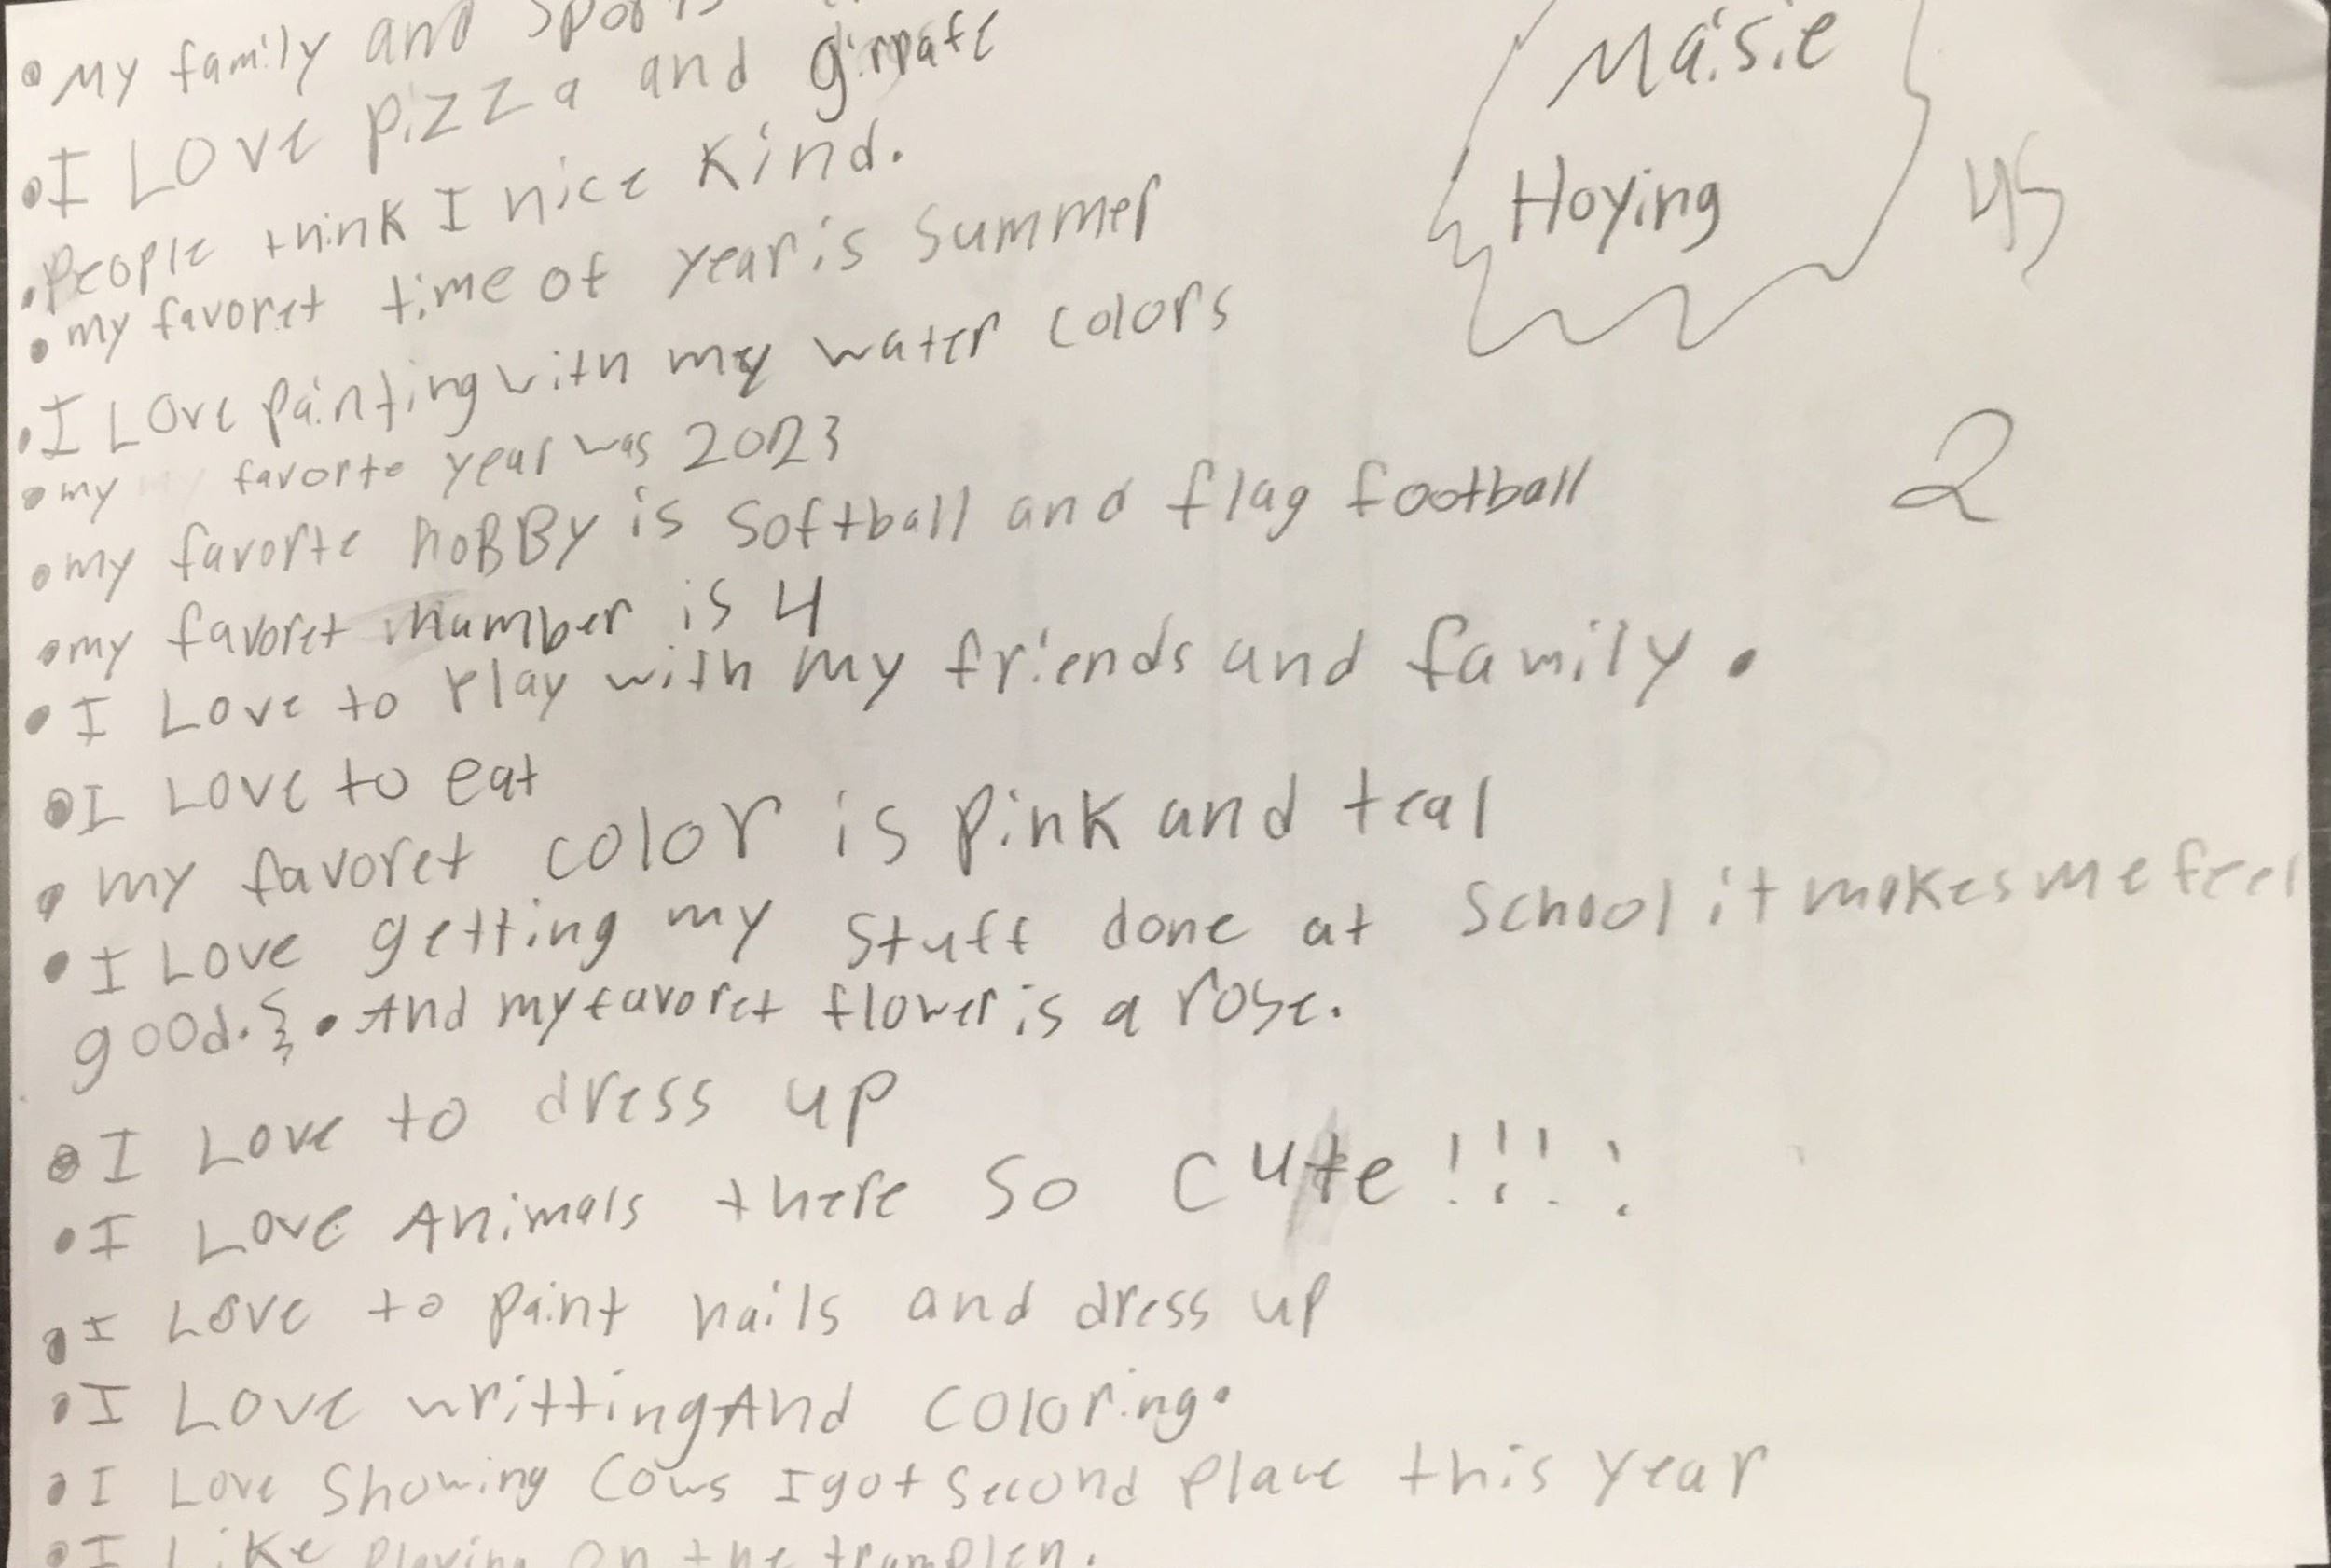 • My family and Sports
• I Love pizza and
• People think I nice Kind.
• my favoret time of year is Summer
• I Love painting with my water colors
• my favorte year was 2023
• my favorte hoBBy is Softball and flag football
• my favoret number is 4
• I Love to play with my friends and family.
• I Love to eat
• my favoret color is pink and teal
• I Love getting my Stuff done at School it makes me feel
good. • And my favoret flower is a rose.
• I Love to dress up
• I Love Animals there So cute !!!!
• I Love to paint nails and dress up
• I Love writting And coloring.
• I Love Showing Cows I got Second Place this year
• I Like playing on the tramplen.
Maisie
Hoying
45
2